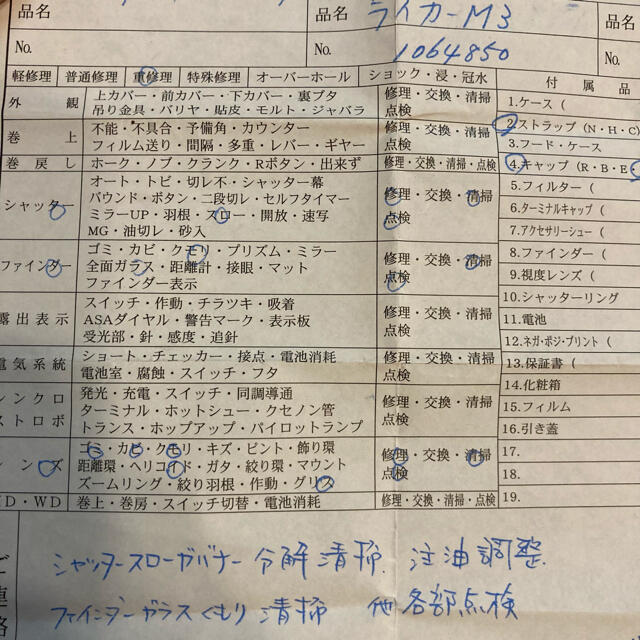 品名
品名 ライカーM3
品名
No.
No. 1064850
No.
軽修理 普通修理 重修理 特殊修理 オーバーホール ショック・浸・冠水
付属品
外観
上カバー・前カバー・下カバー・裏ブタ
吊り金具・バリヤ・貼皮・モルト・ジャバラ
修理・交換・清掃
点検
巻上
不能・不具合・予備角・カウンター
フィルム送り・間隔・多重・レバー・ギヤー
修理・交換・清掃
点検
巻戻し
ホーク・ノブ・クランク・Rボタン・出来ず
修理・交換・清掃・点検
シャッター
オート・トビ・切レ不・シャッター幕
バウンド・ボタン・二段切レ・セルフタイマー
ミラーUP・羽根・スロー・開放・速写
MG・油切レ・砂入
修理・交換・清掃
点検
ファインダー
ゴミ・カビ・クモリ・プリズム・ミラー
全面ガラス・距離計・接眼・マット
ファインダー表示
修理・交換・清掃
点検
露出表示
スイッチ・作動・チラツキ・吸着
ASAダイヤル・警告マーク・表示板
受光部・針・感度・追針
修理・交換・清掃
点検
電気系統
ショート・チェッカー・接点・電池消耗
電池室・腐蝕・スイッチ・フタ
修理・交換・清掃
点検
シンクロ
ストロボ
発光・充電・スイッチ・同調導通
ターミナル・ホットシュー・クセノン管
トランス・ホップアップ・パイロットランプ
修理・交換・清掃
点検
レンズ
ゴミ・カビ・クモリ・キズ・ピント・飾り環
距離環・ヘリコイド・ガタ・絞り環・マウント
ズームリング・絞り羽根・作動・グリス
修理・交換・清掃
点検
D・WD
巻上・巻戻・スイッチ切替・電池消耗
修理・交換・清掃・点検
1.ケース (
2.ストラップ (N・H・C
3.フード・ケース
4.キャップ (R・B・E
5.フィルター (
6.ターミナルキャップ (
7.アクセサリーシュー (
8.ファインダー (
9.視度レンズ (
10.シャッターリング
11.電池
12.ネガ・ポジ・プリント (
13.保証書 (
14.化粧箱
15.フィルム
16.引き蓋
17.
18.
19.
ご連絡
シャッタースローガバナー分解清掃. 注油調整
ファインダーガラスくもり清掃 他各部点検